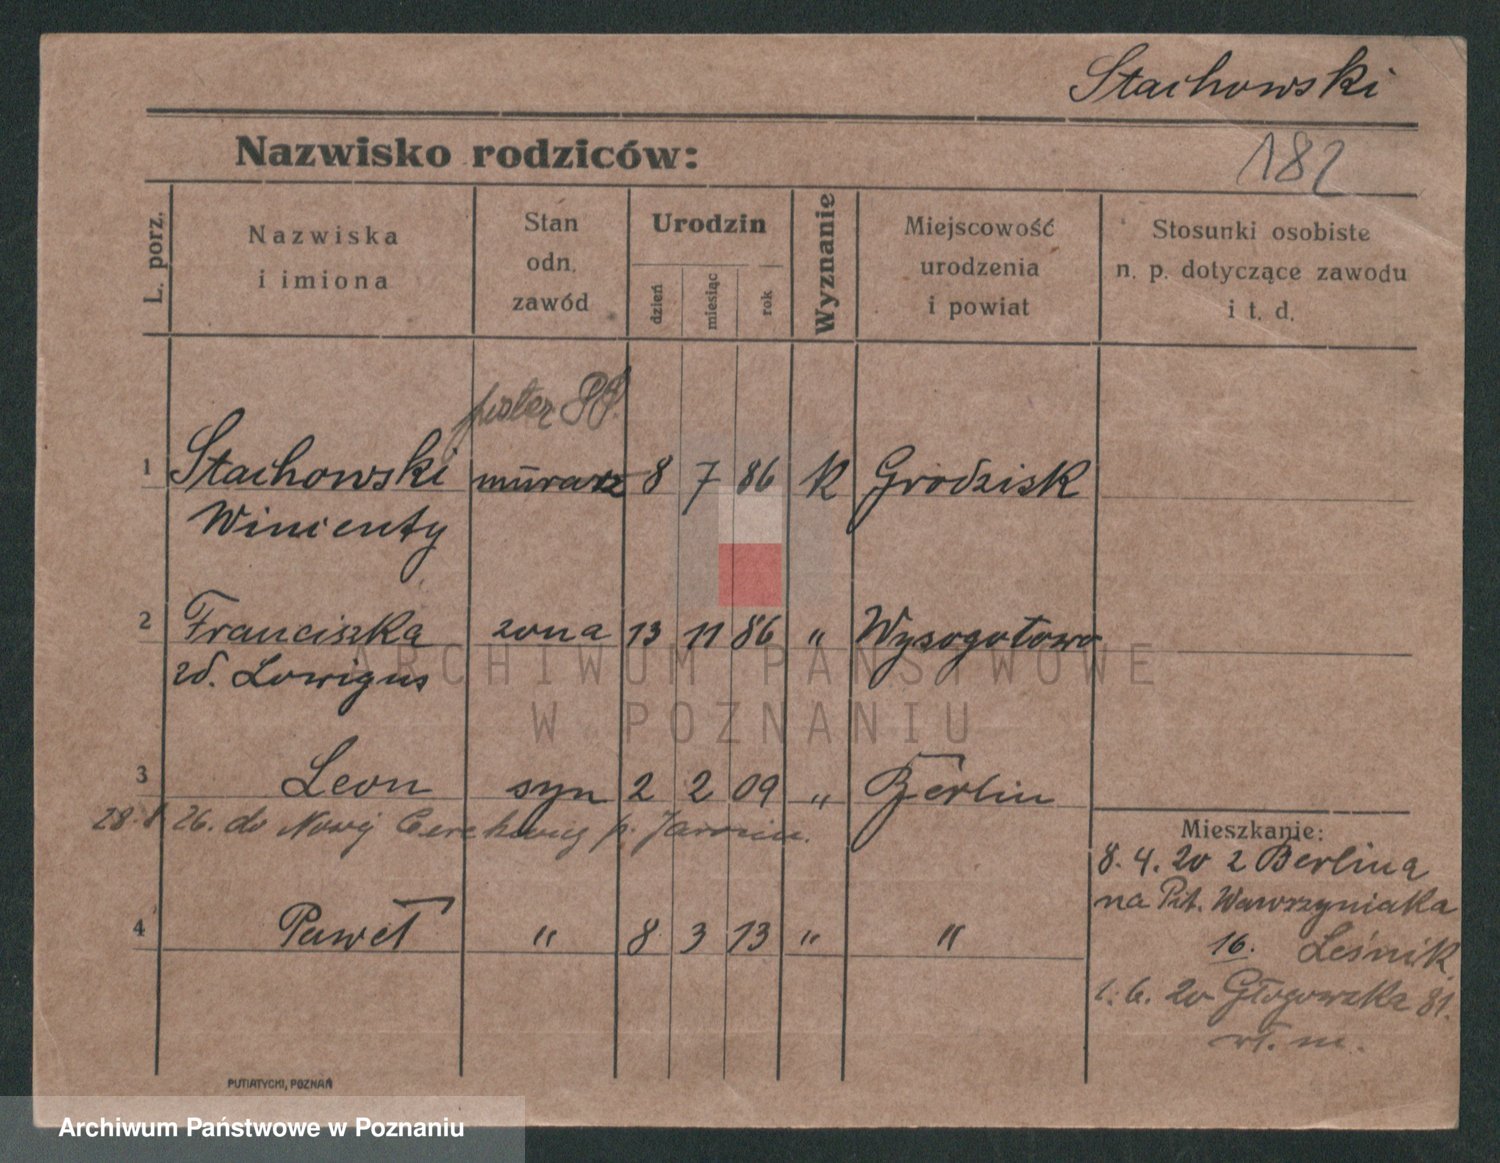 Stachowski
182
Nazwisko rodziców:
L. porz.
Nazwiska
i imiona
Stan
odn.
zawód
Urodzin
dzień
miesiąc
rok
Wyznanie
Miejscowość
urodzenia
i powiat
Stosunki osobiste
n. p. dotyczące zawodu
i t. d.
1 Stachowski murarz 8 7 86 K Grodzisk
Winienty
2 Franciszka zona 13 11 86 " Wysogotowo
zd. Lowigus
3 Leon syn 2 2 09 " Berlin
26. do Nowej p. Jarocin.
4 Paweł " 8 3 13 " "
Mieszkanie:
8. 4. 20 z Berlina
na Wawrzyniaka
16. Leśnik
1. 6. 20 Głogowska 81.
PUTIATYCKI, POZNAŃ
ARCHIWUM PAŃSTWOWE
W POZNANIU
Archiwum Państwowe w Poznaniu